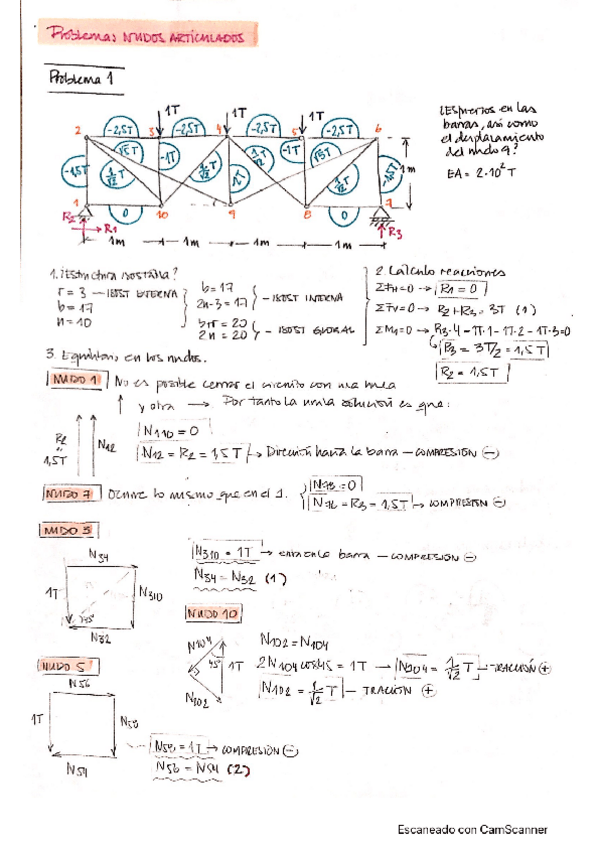 Problemas NUDOS ARTICULADOS
Problema 1
1T 1T 1T
2 -2,5T 3 -2,5T 4 -2,5T 5 -2,5T 6
-1,5T √5T 1/√2 T -1T 1/√2 T 1T 1/√2 T -1T √5T 1/√2 T -1,5T
1m
1 0 10 9 8 0 7
R2 R1 R3
1m 1m 1m 1m
¿Esfuerzos en las
barras, así como
el desplazamiento
del nudo 9?
EA = 2·10² T
1. ¿Estructura isostática?
r = 3 — ISOST EXTERNA
b = 17
n = 10
b = 17
2n-3 = 17
— ISOST INTERNA
b+r = 20
2n = 20
— ISOST GLOBAL
2. Cálculo reacciones
ΣFH=0 → R1 = 0
ΣFV=0 → R2+R3 = 3T (1)
ΣM1=0 → R3·4 - 1T·1 - 1T·2 - 1T·3=0
R3 = 3T/2 = 1,5T
R2 = 1,5T
3. Equilibrio en los nudos.
NUDO 1 No es posible cerrar el circuito con una línea
↑ y otra → Por tanto la única solución es que:
R2 = 1,5T N12
N110 = 0
N12 = R2 = 1,5T → Dirección hacia la barra — COMPRESIÓN ⊖
NUDO 7 Ocurre lo mismo que en el 1.
N78 = 0
N76 = R3 = 1,5T → COMPRESIÓN ⊖
NUDO 3
N34
1T N310
45°
N32
N310 = 1T → entra en la barra — COMPRESIÓN ⊖
N34 = N32 (1)
NUDO 10
N104
45° 1T
N102
N102 = N104
2N104 cos45 = 1T → N104 = 1/√2 T — TRACCIÓN ⊕
N102 = 1/√2 T — TRACCIÓN ⊕
NUDO 5
N56
1T N58
N54
N58 = 1T → COMPRESIÓN ⊖
N56 = N54 (2)
Escaneado con CamScanner